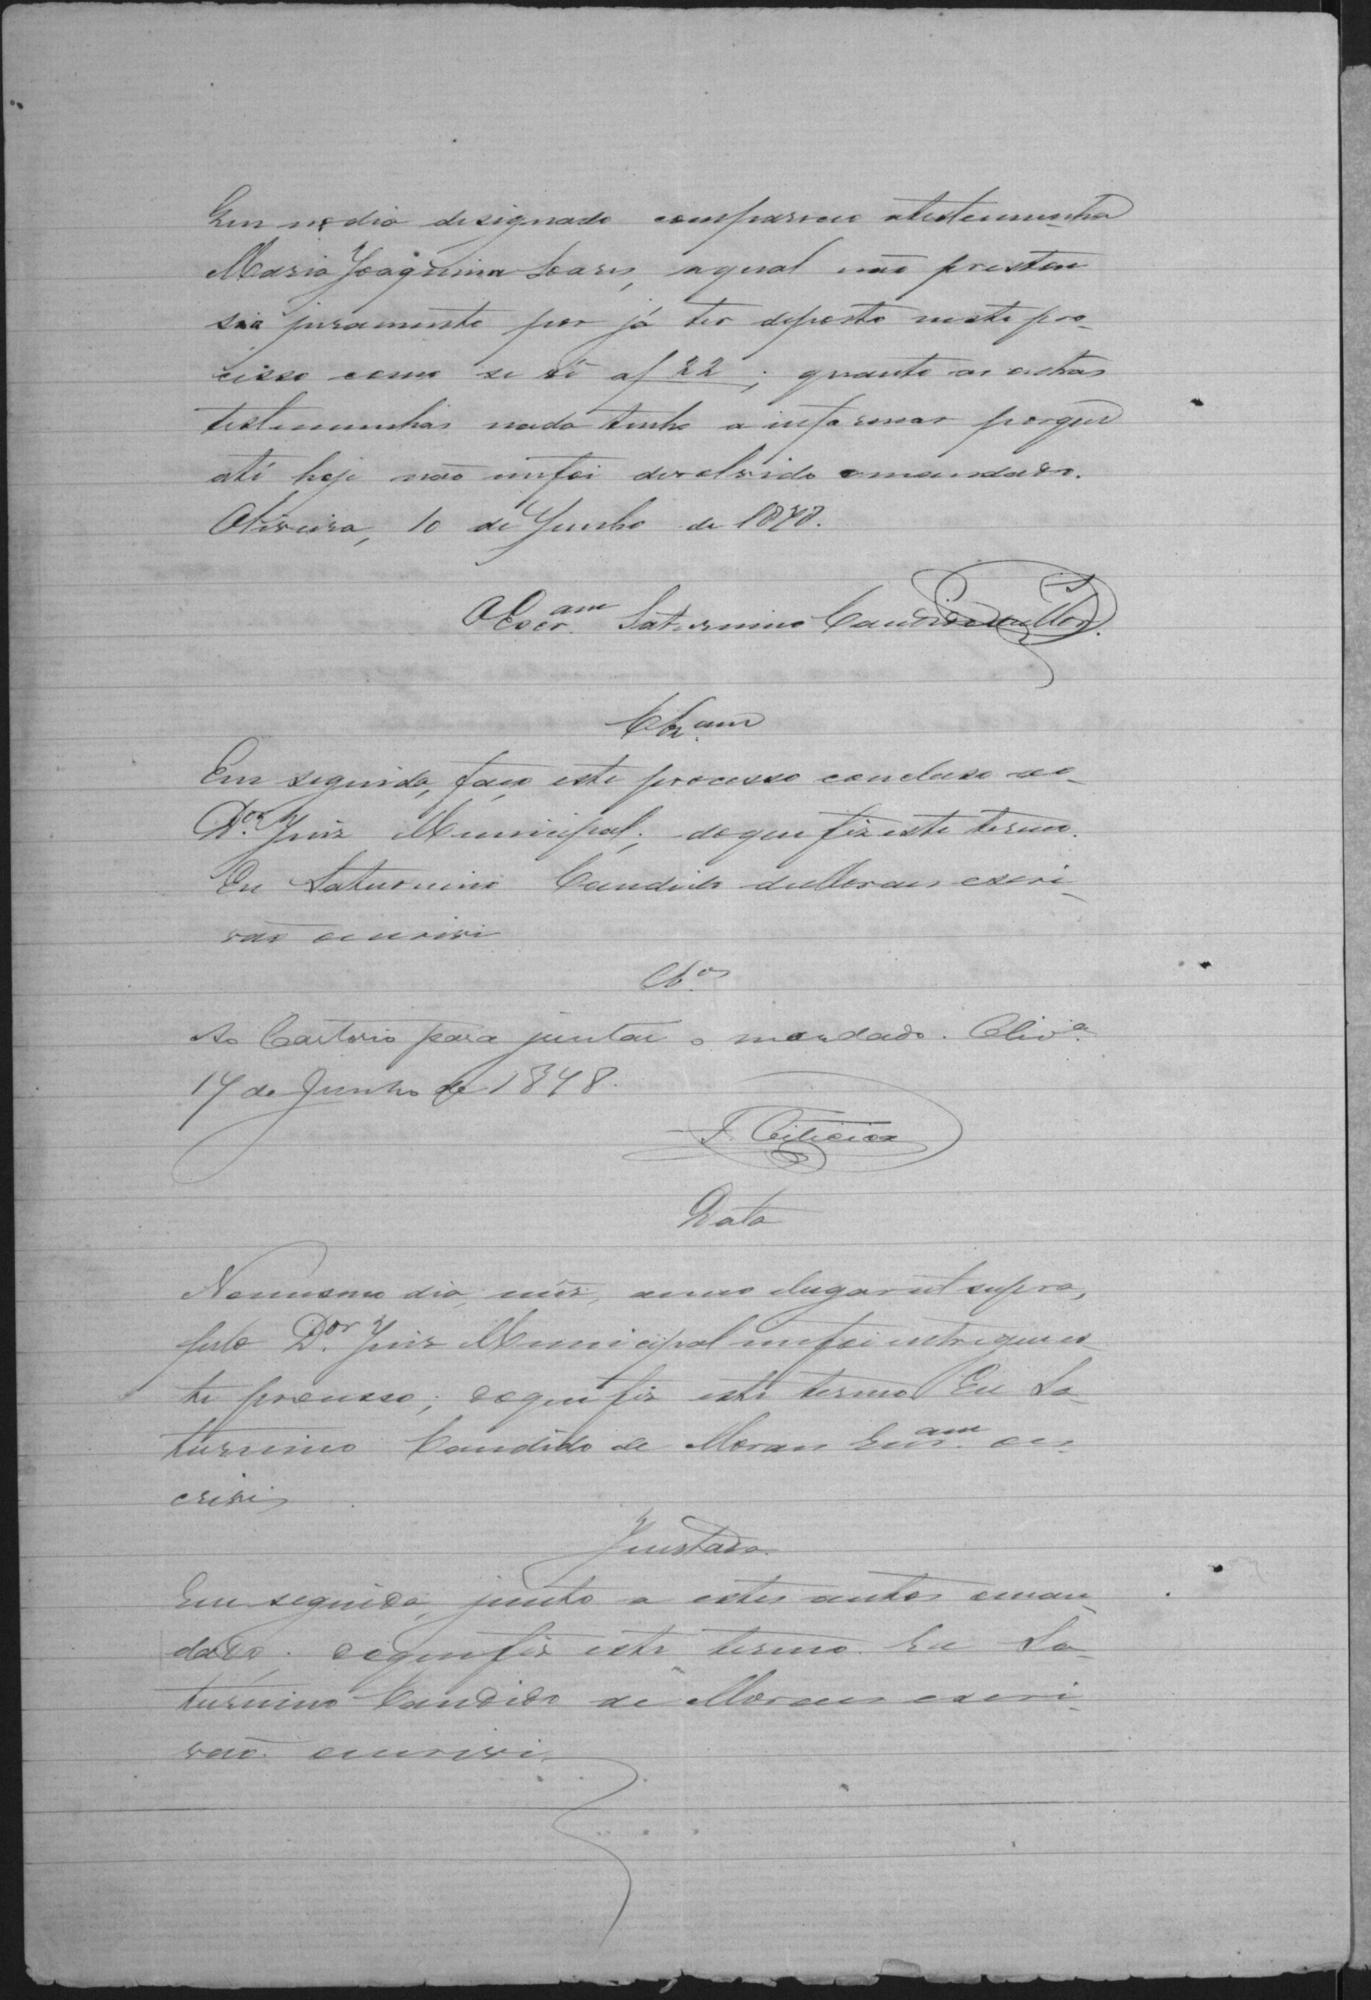 Em no dia designado compareceu a testemunha
Maria Joaquina Soares, a qual não prestou
seu juramento por já ter deposto neste pro-
cesso como se vê a f 22; quanto as outras
testemunhas nada tenho a informar porque
até hoje não me foi devolvido o mandado.
Oliveira, 10 de Junho de 1878.
O Escr.am Saturnino Candido de Mor.
Clz.am
Em seguida, faço este processo concluso ao
D.or Juiz Municipal; do que fiz este termo.
Eu Saturnino Candido de Moraes escri-
vão o escrivi
Cl.os
Ao Cartorio para juntar o mandado. Oliv.a
17 de Junho de 1878.
Data
No mesmo dia, mez, anno e lugar ut supra,
pelo D.or Juiz Municipal me foi entregue es-
te processo; do que fiz este termo Eu Sa-
turnino Candido de Moraes Escr.am o es-
crivi
Juntada
Em seguida, junto a estes autos o man-
dado; do que fiz este termo. Eu Sa-
turnino Candido de Moraes escri-
vão o escrivi.